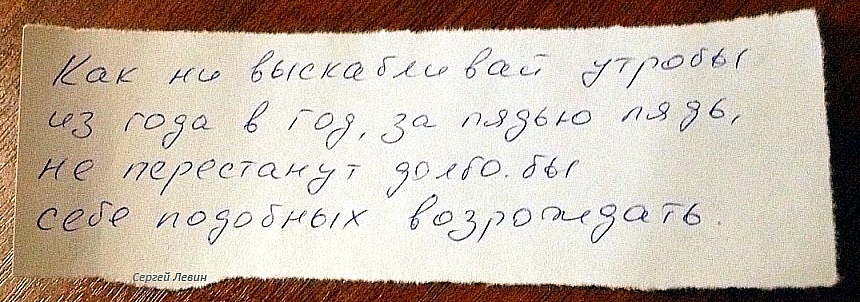 Как ни выскабливай утробы
из года в год, за пядью пядь,
не перестанут долбо.бы
себе подобных возрождать.
Сергей Левин